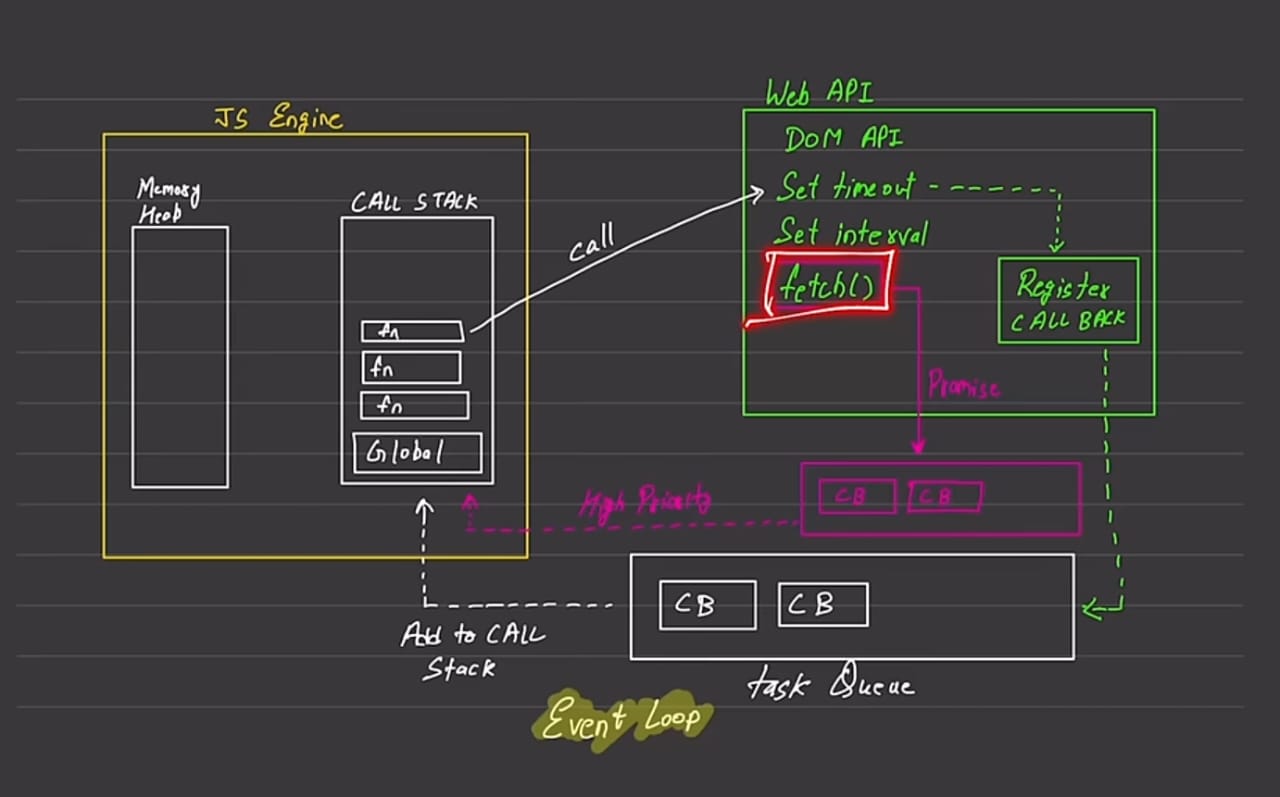 JS Engine
Memory
Heap
CALL STACK
fn
fn
fn
Global
call
Web API
DOM API
Set timeout
Set interval
fetch()
Register
CALL BACK
Promise
High Priority
CB CB
CB CB
Add to CALL
Stack
task Queue
Event Loop